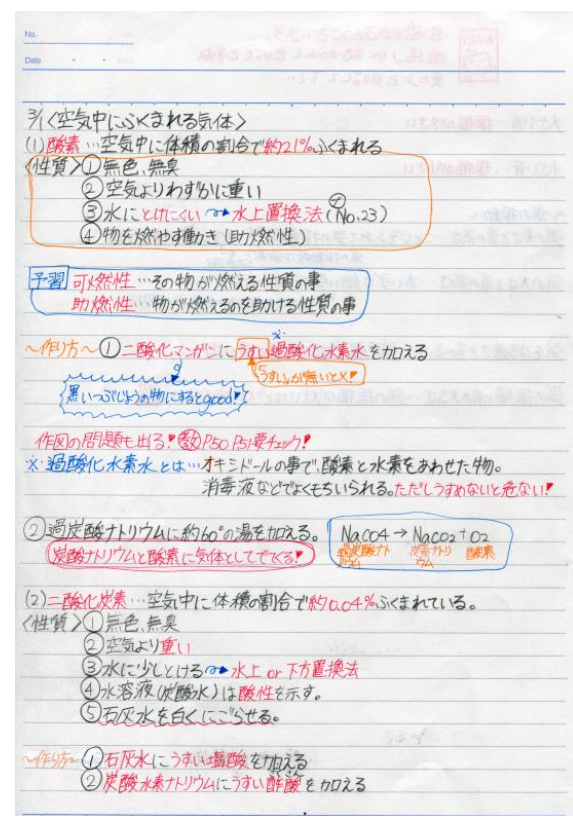 No.
Date
3/1 〈空気中にふくまれる気体〉
(1) 酸素…空気中に体積の割合で約21%ふくまれる
〈性質〉① 無色、無臭
② 空気よりわずかに重い
③ 水にとけにくい → 水上置換法 (No.23)
④ 物を燃やす働き (助燃性)
予習 可燃性…その物が燃える性質の事
助燃性…物が燃えるのを助ける性質の事
※
〜作り方〜 ① 二酸化マンガンにうすい過酸化水素水を加える
うすいが無いと×!
黒いつぶじょうの物にするとgood!
作図の問題も出る! 教 P50 P51 要チェック!
※ 過酸化水素水とは…オキシドールの事で、酸素と水素をあわせた物。
消毒液などでよくもちいられる。ただしうすめないと危ない!
② 過炭酸ナトリウムに約60°の湯を加える。 NaCO4 → NaCO2 + O2
過炭酸ナトリウム 炭素ナトリウム 酸素
炭酸ナトリウムと酸素に気体としてでてくる!
(2) 二酸化炭素…空気中に体積の割合で約0.04%ふくまれている。
〈性質〉① 無色、無臭
② 空気より重い
③ 水に少しとける → 水上 or 下方置換法
④ 水溶液 (炭酸水) は酸性を示す。
⑤ 石灰水を白くにごらせる。
〜作り方〜 ① 石灰水にうすい塩酸を加える
② 炭酸水素ナトリウムにうすい酢酸を加える